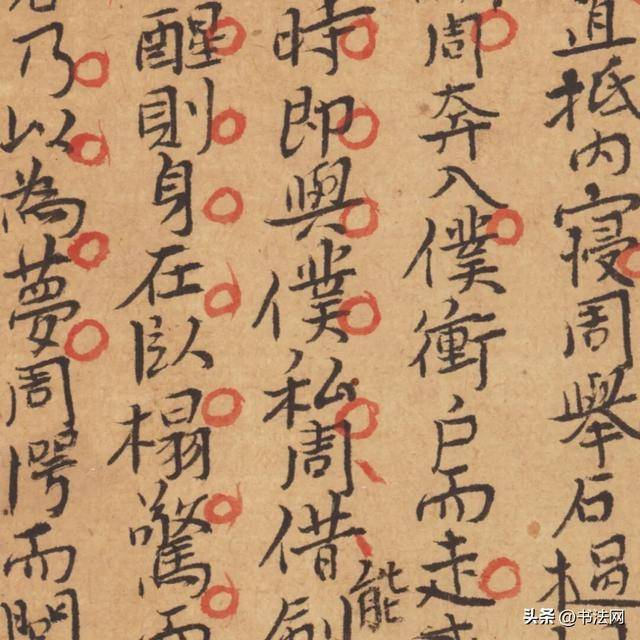 直抵內寝周舉石
周奔入僕衝户而走
時即與僕私周借劍
能
醒則身在臥榻驚而
乃以為夢周愕而問
头条 @书法网